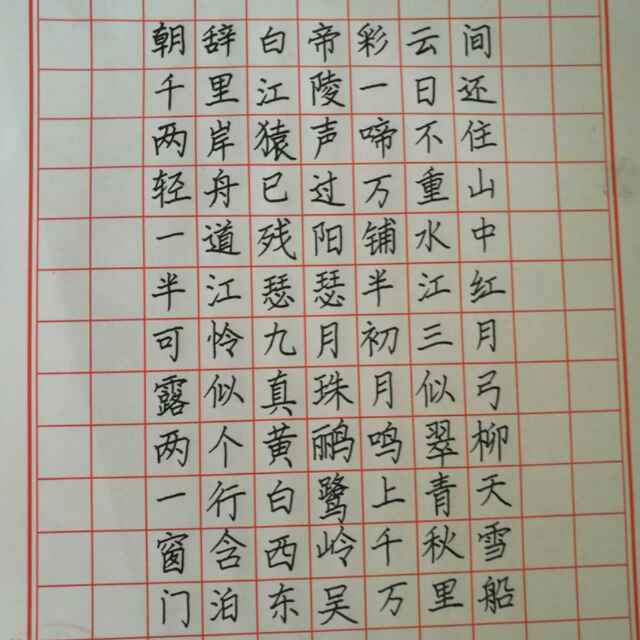 朝辞白帝彩云间
千里江陵一日还
两岸猿声啼不住
轻舟已过万重山
一道残阳铺水中
半江瑟瑟半江红
可怜九月初三月
露似真珠月似弓
两个黄鹂鸣翠柳
一行白鹭上青天
窗含西岭千秋雪
门泊东吴万里船